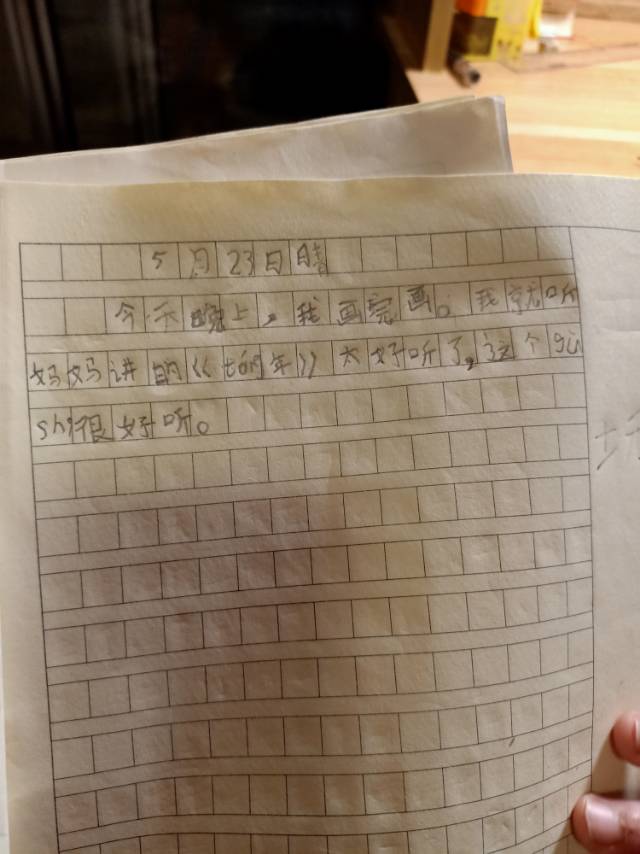 5月23日晴
今天晚上,我画完画。我就听
妈妈讲的《 年》太好听了,这个gù
shi很好听。